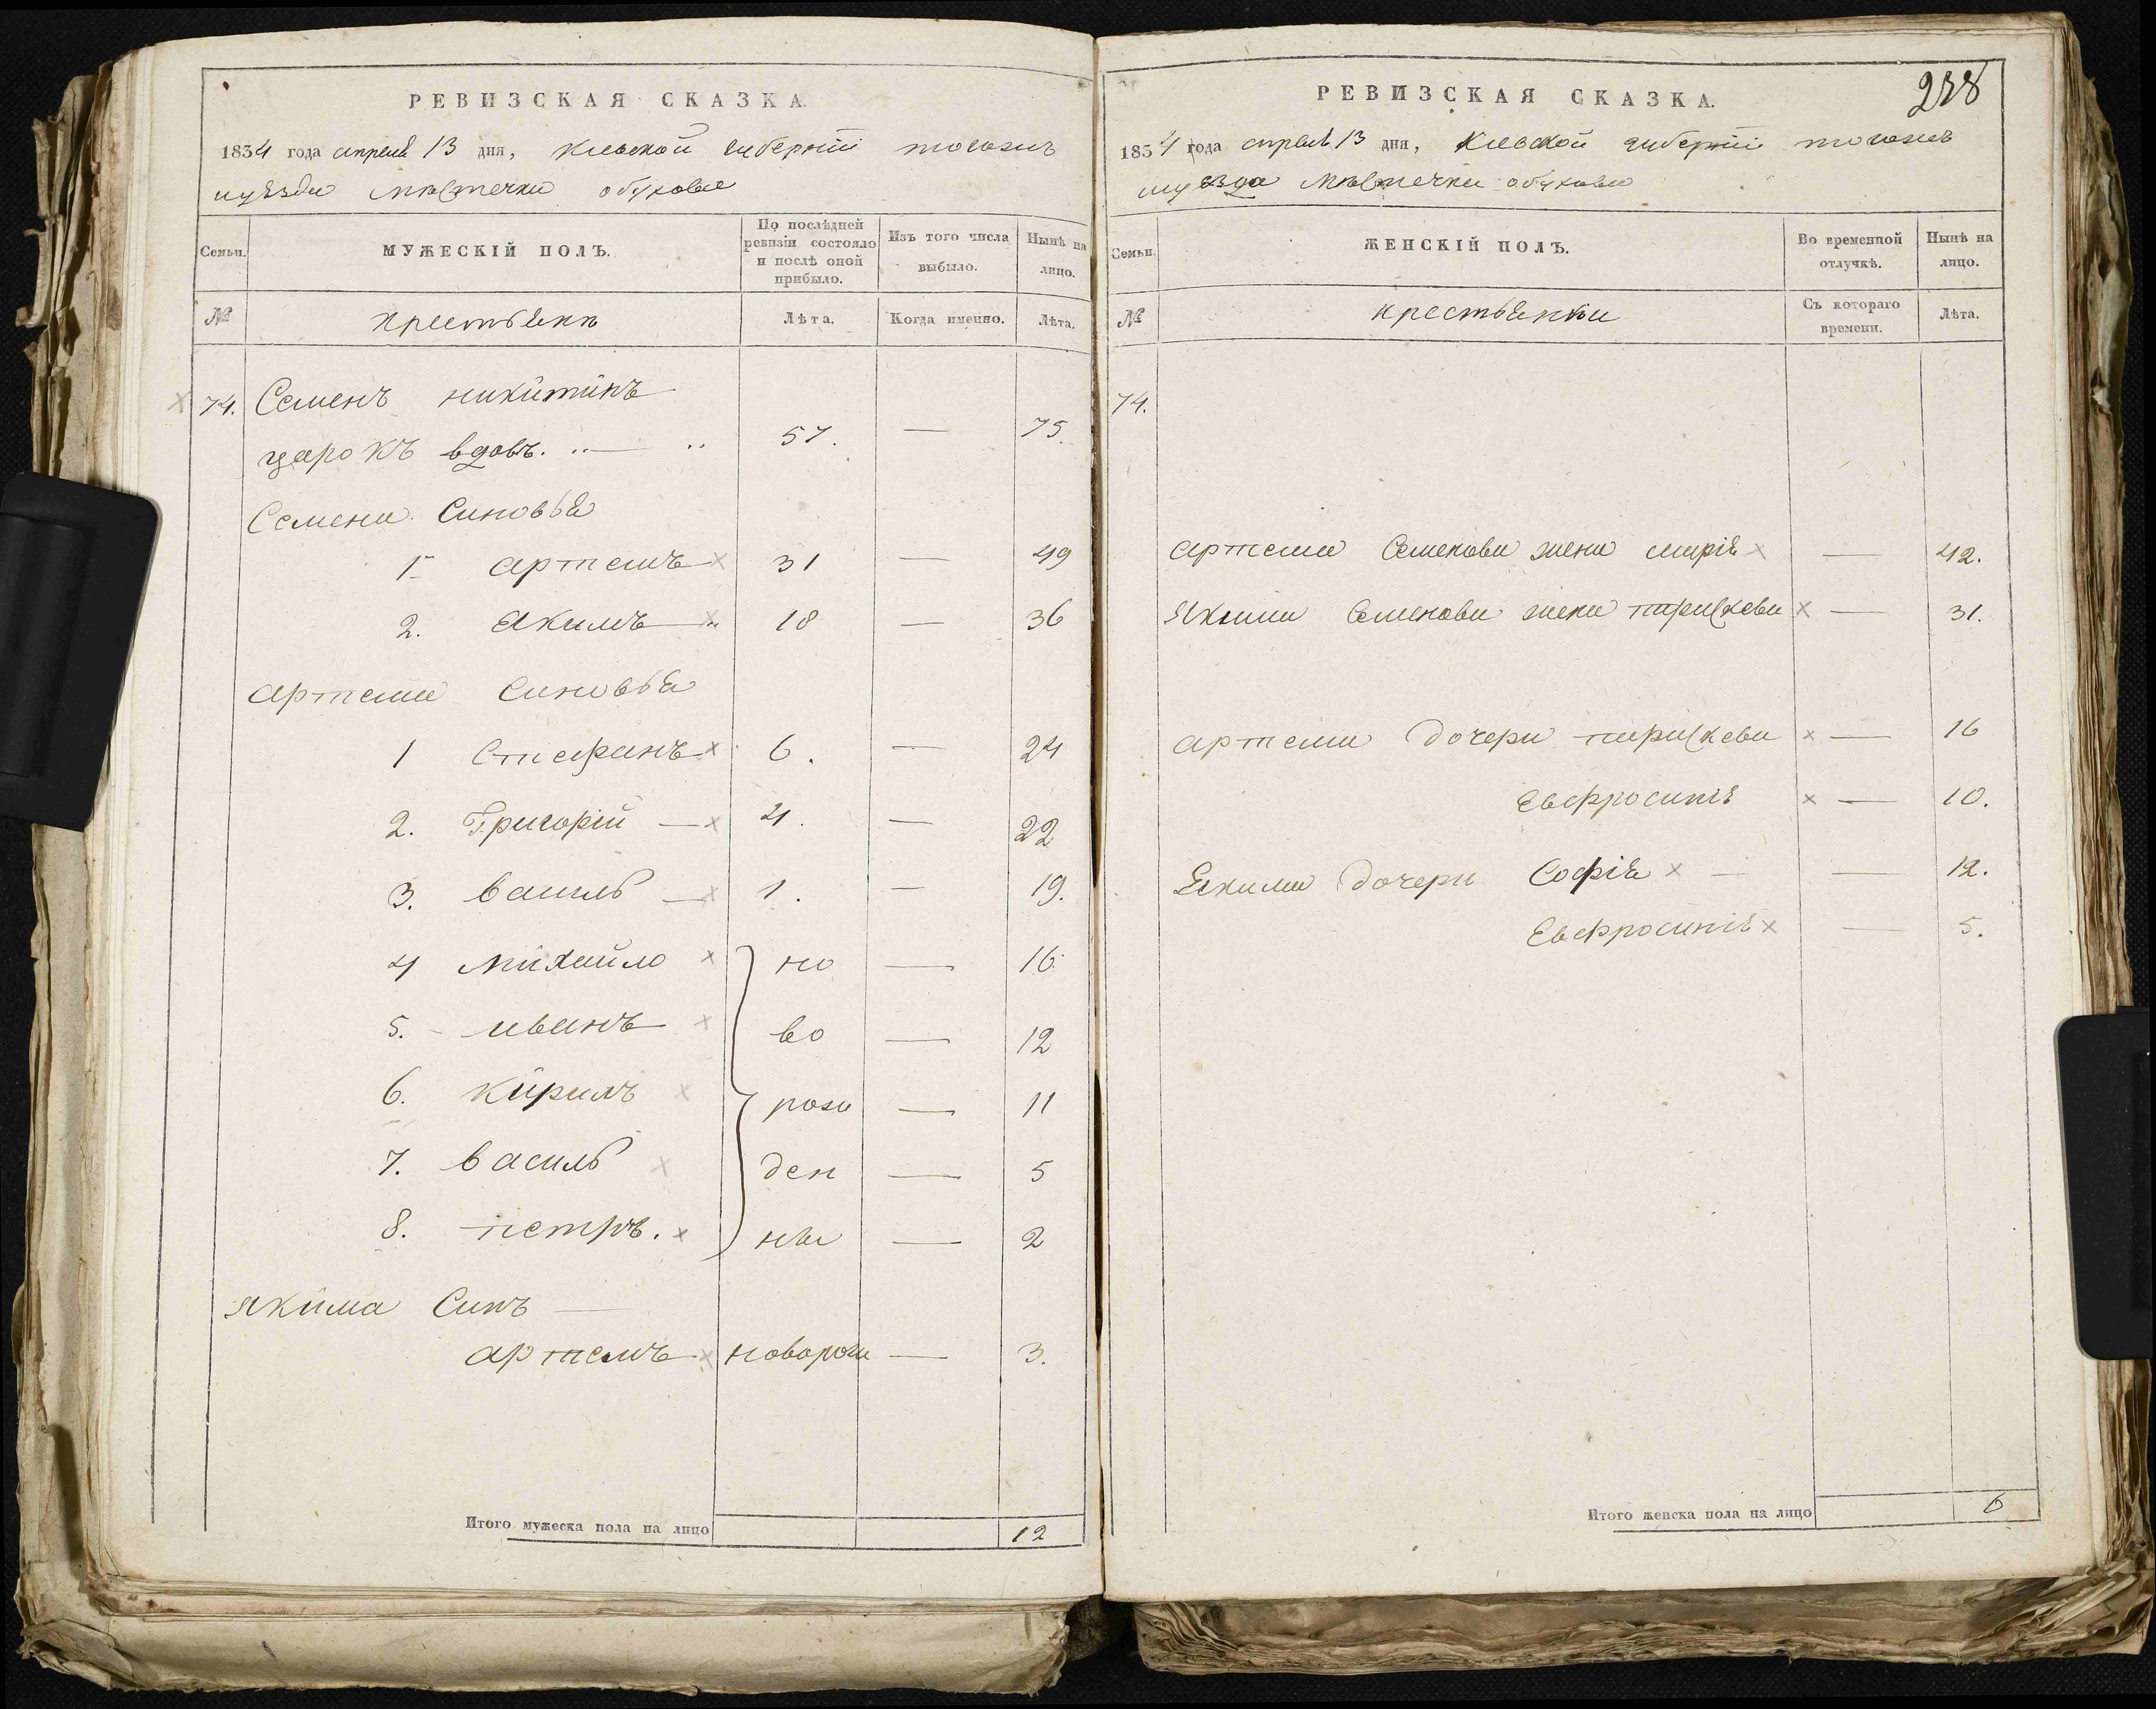 РЕВИЗСКАЯ СКАЗКА.
1834 года апреля 13 дня, киевской губернїи тогожъ
уѣзда мѣстечка обухова
Семьи.
МУЖЕСКІЙ ПОЛЪ.
По послѣдней ревизіи состояло и послѣ оной прибыло.
Изъ того числа выбыло.
Нынѣ на лицо.
№
крестьянъ
Лѣта.
Когда именно.
Лѣта.
74. Семенъ никитинъ
царокъ вдовъ. 57. — 75.
Семена Синовья
1 артемъ 31 — 49
2. Якимъ 18 — 36
артема Синовья
1 Стефанъ 6. — 24
2. Григорїй — 4. — 22
3. василь — 1. — 19.
4 михайло но — 16
5. иванъ во — 12
6. кирилъ рож — 11
7. василь ден — 5
8. петръ. ны — 2
якима Синъ
артемъ новорож — 3.
Итого мужеска пола на лицо 12
288
РЕВИЗСКАЯ СКАЗКА.
1834 года апреля 13 дня, Киевской губернїи тогожъ
уезда мѣстечка обухова
Семьи.
ЖЕНСКІЙ ПОЛЪ.
Во временной отлучкѣ.
Нынѣ на лицо.
№
крестьянки
Съ котораго времени.
Лѣта.
74.
артема Семенова жена марія — 42.
Якима Семенова жена параскева — 31.
артема дочери параскева — 16
Евфросинія — 10.
Якима дочери Софія — 12.
Евфросинія — 5.
Итого женска пола на лицо 6